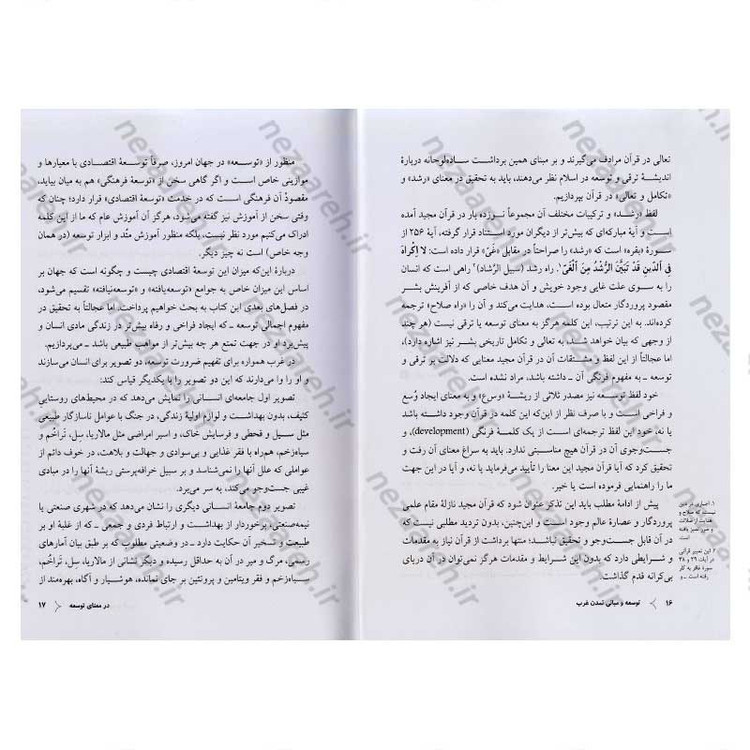 تعالی در قرآن مرادف می‌گیرند و بر مبنای همین برداشت ساده‌لوحانه دربارهٔ
اندیشهٔ ترقی و توسعه در اسلام نظر می‌دهند، باید به تحقیق در معنای «رشد» و
«تکامل و تعالی» در قرآن بپردازیم.
لفظ «رشد» و ترکیبات مختلف آن مجموعاً نوزده بار در قرآن مجید آمده
است و آیهٔ مبارکه‌ای که بیش‌تر از دیگران مورد استناد قرار گرفته، آیهٔ ۲۵۶ از
سورهٔ «بقره» است که «رشد» را صراحتاً در مقابل «غَیّ» قرار داده است: لا إِکراهَ
فِی الدّینِ قَد تَبَیَّنَ الرُّشدُ مِنَ الْغَیِّ.۱ راه رشد (سبیل الرَّشاد)۲ راهی است که انسان
را به سوی علت غایی وجود خویش و آن هدف خاصی که از آفرینش بشر
مقصود پروردگار متعال بوده است، هدایت می‌کند و آن را «راه صلاح» ترجمه
کرده‌اند. به این ترتیب، این کلمه هرگز به معنای توسعه یا ترقی نیست (هر چند
از وجهی که بیان خواهد شد، به تعالی و تکامل تاریخی بشر نیز اشاره دارد)،
اما عجالتاً از این لفظ و مشتقات آن در قرآن مجید معنایی که دلالت بر ترقی و
توسعه ـ به مفهوم فرنگی آن ـ داشته باشد، مراد نشده است.
خود لفظ توسعه نیز مصدر ثلاثی از ریشهٔ «وسع» و به معنای ایجاد وُسع
و فراخی است و با صرف نظر از این‌که این کلمه در قرآن وجود داشته باشد
یا نه، خود این لفظ ترجمه‌ای است از یک کلمهٔ فرنگی (development)، و
جست‌وجوی آن در قرآن هیچ مناسبتی ندارد. باید به سراغ معنای آن رفت و
تحقیق کرد که آیا قرآن مجید این معنا را تأیید می‌فرماید یا نه، و آیا در این جهت
ما را راهنمایی فرموده است یا خیر.
پیش از ادامهٔ مطلب باید این تذکر عنوان شود که قرآن مجید نازلهٔ مقام علمی
پروردگار و عصارهٔ عالم وجود است و این‌چنین، بدون تردید مطلبی نیست که
در آن قابل جست‌وجو و تحقیق نباشد؛ منتها برداشت از قرآن نیاز به مقدمات
و شرایطی دارد که بدون این شرایط و مقدمات هرگز نمی‌توان در آن دریای
بی‌کرانه قدم گذاشت.
۲. این تعبیر قرآنی
در آیات ۲۹ و ۳۸
سورهٔ غافر به کار
رفته است. ـ و
۱۶ توسعه و مبانی تمدن غرب
منظور از «توسعه» در جهان امروز، صرفاً توسعهٔ اقتصادی با معیارها و
موازینی خاص است و اگر گاهی سخن از «توسعهٔ فرهنگی» هم به میان بیاید،
مقصودْ آن فرهنگی است که در خدمت «توسعهٔ اقتصادی» قرار دارد؛ چنان که
وقتی سخن از آموزش نیز گفته می‌شود، هرگز آن آموزش عام که ما از این کلمه
ادراک می‌کنیم مورد نظر نیست، بلکه منظور آموزش مِتُد و ابزار توسعه (در همان
وجه خاص) است نه چیز دیگر.
دربارهٔ این‌که میزان این توسعهٔ اقتصادی چیست و چگونه است که جهان بر
اساس این میزان خاص به جوامع «توسعه‌یافته» و «توسعه‌نیافته» تقسیم می‌شود،
در فصل‌های بعدی این کتاب به بحث خواهیم پرداخت. اما عجالتاً به تحقیق در
مفهوم اجمالی توسعه ـ که ایجاد فراخی و رفاه بیش‌تر در زندگی مادی انسان و
پیش‌برد او در جهت تمتع هر چه بیش‌تر از مواهب طبیعی باشد ـ می‌پردازیم.
در غرب همواره برای تفهیم ضرورت توسعه، دو تصویر برای انسان می‌سازند
و او را وا می‌دارند که این دو تصویر را با یکدیگر قیاس کند:
تصویر اول جامعه‌ای انسانی را نمایش می‌دهد که در محیط‌های روستایی
کثیف، بدون بهداشت و لوازم اولیهٔ زندگی، در جنگ با عوامل ناسازگار طبیعی
مثل سیل و قحطی و فرسایش خاک، و اسیر امراضی مثل مالاریا، سِل، تَراخُم و
سیاه‌زخم، همراه با فقر غذایی و بی‌سوادی و جهالت و بلاهت، در خوف دائم از
عواملی که علل آنها را نمی‌شناسد و بر سبیل خرافه‌پرستی ریشهٔ آنها را در مبادی
غیبی جست‌وجو می‌کند، به سر می‌برد.
تصویر دوم جامعهٔ انسانی دیگری را نشان می‌دهد که در شهری صنعتی یا
نیمه‌صنعتی، برخوردار از بهداشت و ارتباط فردی و جمعی ـ که از غلبهٔ او بر
طبیعت و تسخیر آن حکایت دارد ـ در وضعیتی مطلوب که بر طبق بیان آمارهای
رسمی، مرگ و میر در آن به حداقل رسیده و دیگر نشانی از مالاریا، سِل، تَراخُم،
سیاه‌زخم و فقر ویتامین و پروتئین بر جای نمانده، هوشیار و آگاه، بهره‌مند از
در معنای توسعه ۱۷
nezaareh.ir